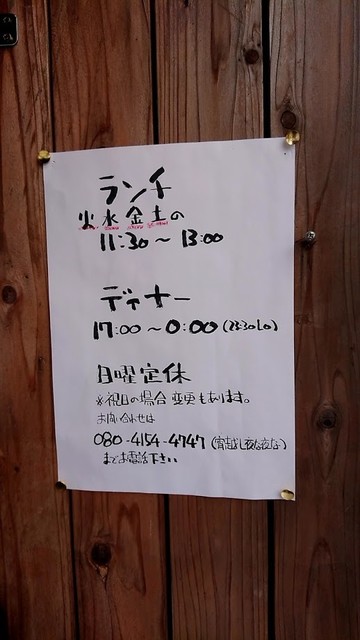 ランチ
火水金土の
11:30～13:00
ディナー
17:00～0:00(23:30LO)
日曜定休
※祝日の場合変更もあります。
お問い合わせは
080-4154-4747(宵越し夜な夜な)
までお電話下さい